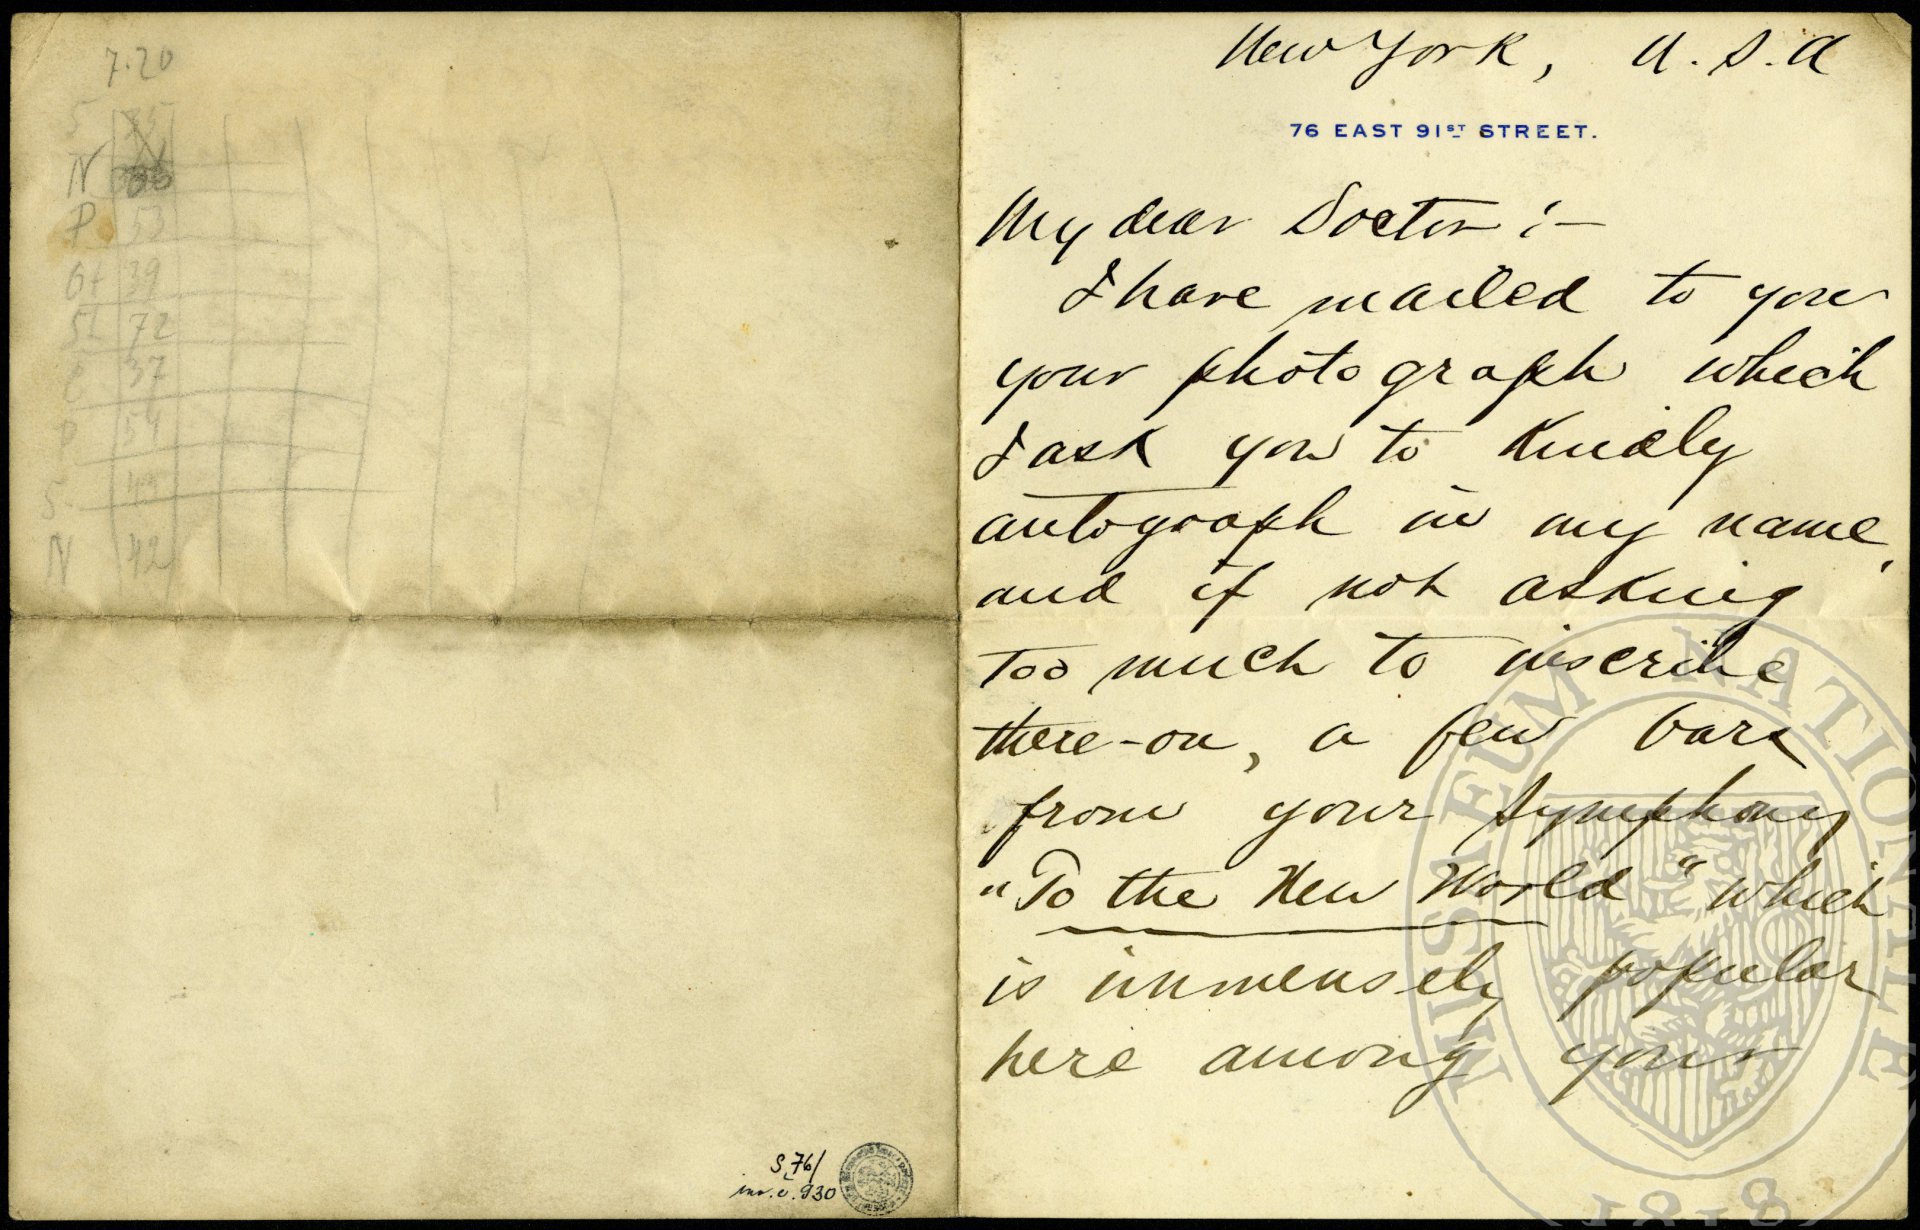 7.20
N
P 53
Gt 39
St 72
C 37
P 54
S
N 42
S.76/
inv.č. 930
New York, U.S.A
76 EAST 91ST STREET.
My dear Doctor :-
I have mailed to you
your photograph which
I ask you to Kindly
autograph in my name,
and if not asking
too much to inscribe
there-on, a few bars
from your Symphony
"To the New World" which
is immensely popular
here among your
MUSEUM NATIONALE
1818